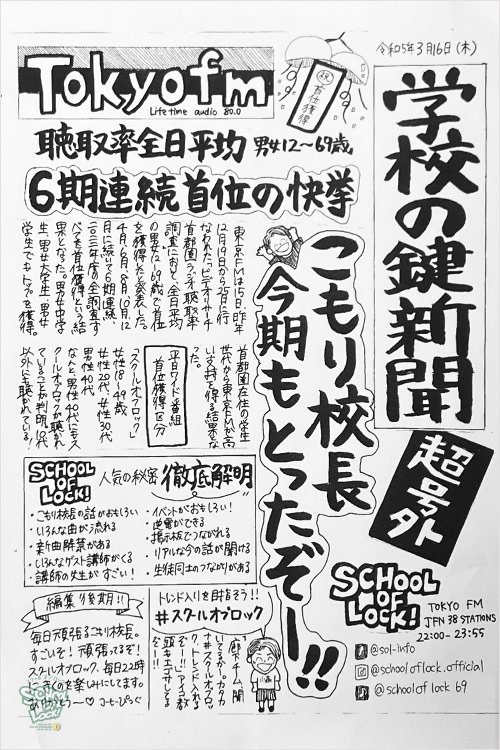 令和5年3月16日(木)
学校の鍵新聞
超号外
Tokyofm
Lifetime audio 80.0
祝
首位獲得
聴取率全日平均 男女12〜69歳
6期連続首位の快挙
こもり校長
今期もとったぞー!!
東京FMは15日、昨年
12月19日から25日に行
なわれた、ビデオリサーチ
首都圏ラジオ聴取率
調査において、全日平均
の男女12〜69歳で首位
を獲得したと発表した。
4月、6月、8月、10月、12
月に続いて6期連続、
学生でもトップを獲得。
首都圏在住の学生
世代から東京FMが高
い支持を得る結果とな
った。
平日ワイド番組
首位獲得区分
「スクールオブロック」
女性18〜49歳
女性20代、女性30代
男性40代
なんと、男性40代にもス
クールオブロックが聴かれ
ていることが判明。10代
以外も聴かれている!
SCHOOL OF LOCK!
人気の秘密 徹底解明
・こもり校長の話がおもしろい
・いろんな曲が流れる
・新曲解禁がある
・いろんなゲスト講師がくる
・講師の先生がすごい!
・イベントがおもしろい!
・逆電ができる
・掲示板でつながれる
・リアルな今の話が聞ける
・生徒同士のつながりがある
編集後期!!
毎日頑張るこもり校長。
すごいぞ!頑張ってるぞ!
スクールオブロック、毎日22時
にきくのを楽しみにしてます。
ありがとう〜♡
トレンド入りを目指そう!!
#スクールオブロック
SCHOOL OF LOCK!
TOKYO FM
JFN 38 STATIONS
22:00-23:55
@sol-info
@schooloflock.official
@schooloflock69
SCHOOL OF LOCK!